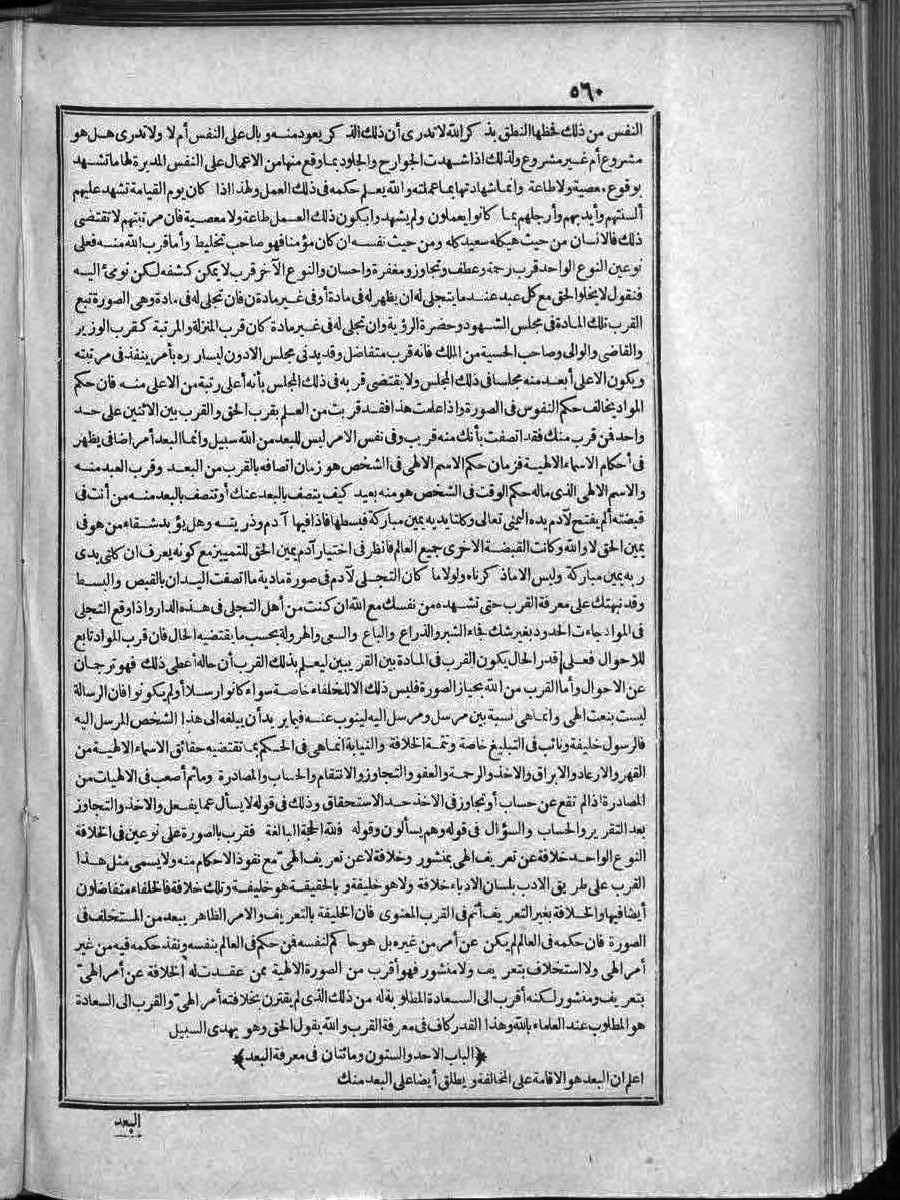 ٥٦٠
النفس من ذلك فحظها النطق بذكر الله لا تدرى أن ذلك الذكر يعود منه وبال على النفس أم لا ولا تدرى هل هو
مشروع أم غير مشروع ولذلك اذا شهدت الجوارح والجلود بما وقع منها من الاعمال على النفس المدبرة لها ما تشهد
بوقوع معصية ولا طاعة وانما شهادتها بما عملته والله يعلم حكمه فى ذلك العمل ولهذا اذا كان يوم القيامة تشهد عليهم
ألسنتهم وأيديهم وأرجلهم بما كانوا يعملون ولم يشهدوا بكون ذلك العمل طاعة ولا معصية فان مرتبتهم لا تقتضى
ذلك فالانسان من حيث هيكله سعيد كله ومن حيث نفسه ان كان مؤمنا فهو صاحب تخليط وأما قرب الله منه فعلى
نوعين النوع الواحد قرب رحمة وعطف وتجاوز ومغفرة واحسان والنوع الآخر قرب لا يمكن كشفه لكن نومئ اليه
فنقول لا يخلوا الحق مع كل عبد عندما يتجلى له ان يظهر له فى مادة أو فى غير مادة فان تجلى له فى مادة وهى الصورة تبع
القرب تلك المادة فى مجلس الشهود وحضرة الرؤية وان تجلى له فى غير مادة كان قرب المنزلة والمرتبة كقرب الوزير
والقاضى والوالى وصاحب الحسبة من الملك فانه قرب متفاضل وقد يدنى مجلس الادون ليساره بأمر ينفذ فى مرتبته
ويكون الاعلى أبعد منه مجلسا فى ذلك المجلس ولا يقتضى قربه فى ذلك المجلس بأنه أعلى رتبة من الاعلى منه فان حكم
المواد يخالف حكم النفوس فى الصورة واذا علمت هذا فقد قربت من العلم بقرب الحق والقرب بين الاثنين على حد
واحد فمن قرب منك فقد اتصفت بأنك منه قريب وفى نفس الامر ليس للبعد من الله سبيل وانما البعد أمر اضافى يظهر
فى أحكام الاسماء الالهية فزمان حكم الاسم الالهى فى الشخص هو زمان اتصافه بالقرب من البعد وقرب العبد منه
والاسم الالهى الذى ماله حكم الوقت فى الشخص هو منه بعيد كيف يتصف بالبعد عنك أو تتصف بالبعد منه من أنت فى
قبضته ألم يفتح لآدم يده اليمنى تعالى وكلتا يديه يمين مباركة فبسطها فاذا فيها آدم وذريته وهل يؤبد شقاء من هو فى
يمين الحق لا والله وكانت القبضة الاخرى جميع العالم فانظر فى اختيار آدم يمين الحق للتمييز مع كونه يعرف ان كلتى يدى
ربه يمين مباركة وليس الا ما ذكرناه ولولا ما كان التجلى لآدم فى صورة مادية ما اتصفت اليدان بالقبض والبسط
وقد نبهتك على معرفة القرب حتى تشهده من نفسك مع الله ان كنت من أهل التجلى فى هذه الدار واذا وقع التجلى
فى المواد جاءت الحدود بغير شك فجاء الشبر والذراع والباع والسعى والهرولة بحسب ما يقتضيه الحال فان قرب المواد تابع
للاحوال فعلى قدر الحال يكون القرب فى المادة بين القريبين ليعلم بذلك القرب أن حاله أعطى ذلك فهو ترجمان
عن الاحوال وأما القرب من الله بحياز الصورة فليس ذلك الا للخلفاء خاصة سواء كانوا رسلا أو لم يكونوا فان الرسالة
ليست بنعت الهى وانما هى نسبة بين مرسل ومرسل اليه لينوب عنه فيما يريد أن يبلغه الى هذا الشخص المرسل اليه
فالرسول خليفة ونائب فى التبليغ خاصة وتتمة الخلافة والنيابة انما هى فى الحكم بما تقتضيه حقائق الاسماء الالهية من
القهر والارعاد والابراق والاخذ والرحمة والعفو والتجاوز والانتقام والحساب والمصادرة وما ثم أصعب فى الالهيات من
المصادرة اذا لم تقع عن حساب أو تجاوز فى الاخذ حد الاستحقاق وذلك فى قوله لا يسأل عما يفعل والاخذ والتجاوز
بعد التقرير والحساب والسؤال فى قوله وهم يسألون وقوله فلله الحجة البالغة فقرب بالصورة على نوعين فى الخلافة
النوع الواحد خلافة عن تعريف الهى بمنشور وخلافة لا عن تعريف الهىّ مع نفوذ الاحكام منه ولا يسمى مثل هذا
القرب على طريق الادب بلسان الادباء خلافة ولا هو خليفة وبالحقيقة هو خليفة وتلك خلافة فالخلفاء متفاضلون
أيضا فيها والخلافة بغير التعريف أتم فى القرب المعنوى فان الخليفة بالتعريف والامر الظاهر يبعد من المستخلف فى
الصورة فان حكمه فى العالم لم يكن عن أمر من غيره بل هو حاكم لنفسه فمن حكم فى العالم بنفسه ونفذ حكمه فيه من غير
أمر الهى ولا استخلاف بتعريف ولا منشور فهو أقرب من الصورة الالهية ممن عقدت له الخلافة عن أمر الهىّ
بتعريف ومنشور لكنه أقرب الى السعادة المطلوبة له من ذلك الذى لم يقترن بخلافته أمر الهىّ والقرب الى السعادة
هو المطلوب عند العلماء بالله وهذا القدر كاف فى معرفة القرب والله يقول الحق وهو يهدى السبيل
﴿الباب الاحد والستون ومائتان فى معرفة البعد﴾
اعلم ان البعد هو الاقامة على المخالفة ويطلق أيضا على البعد منك
البعد